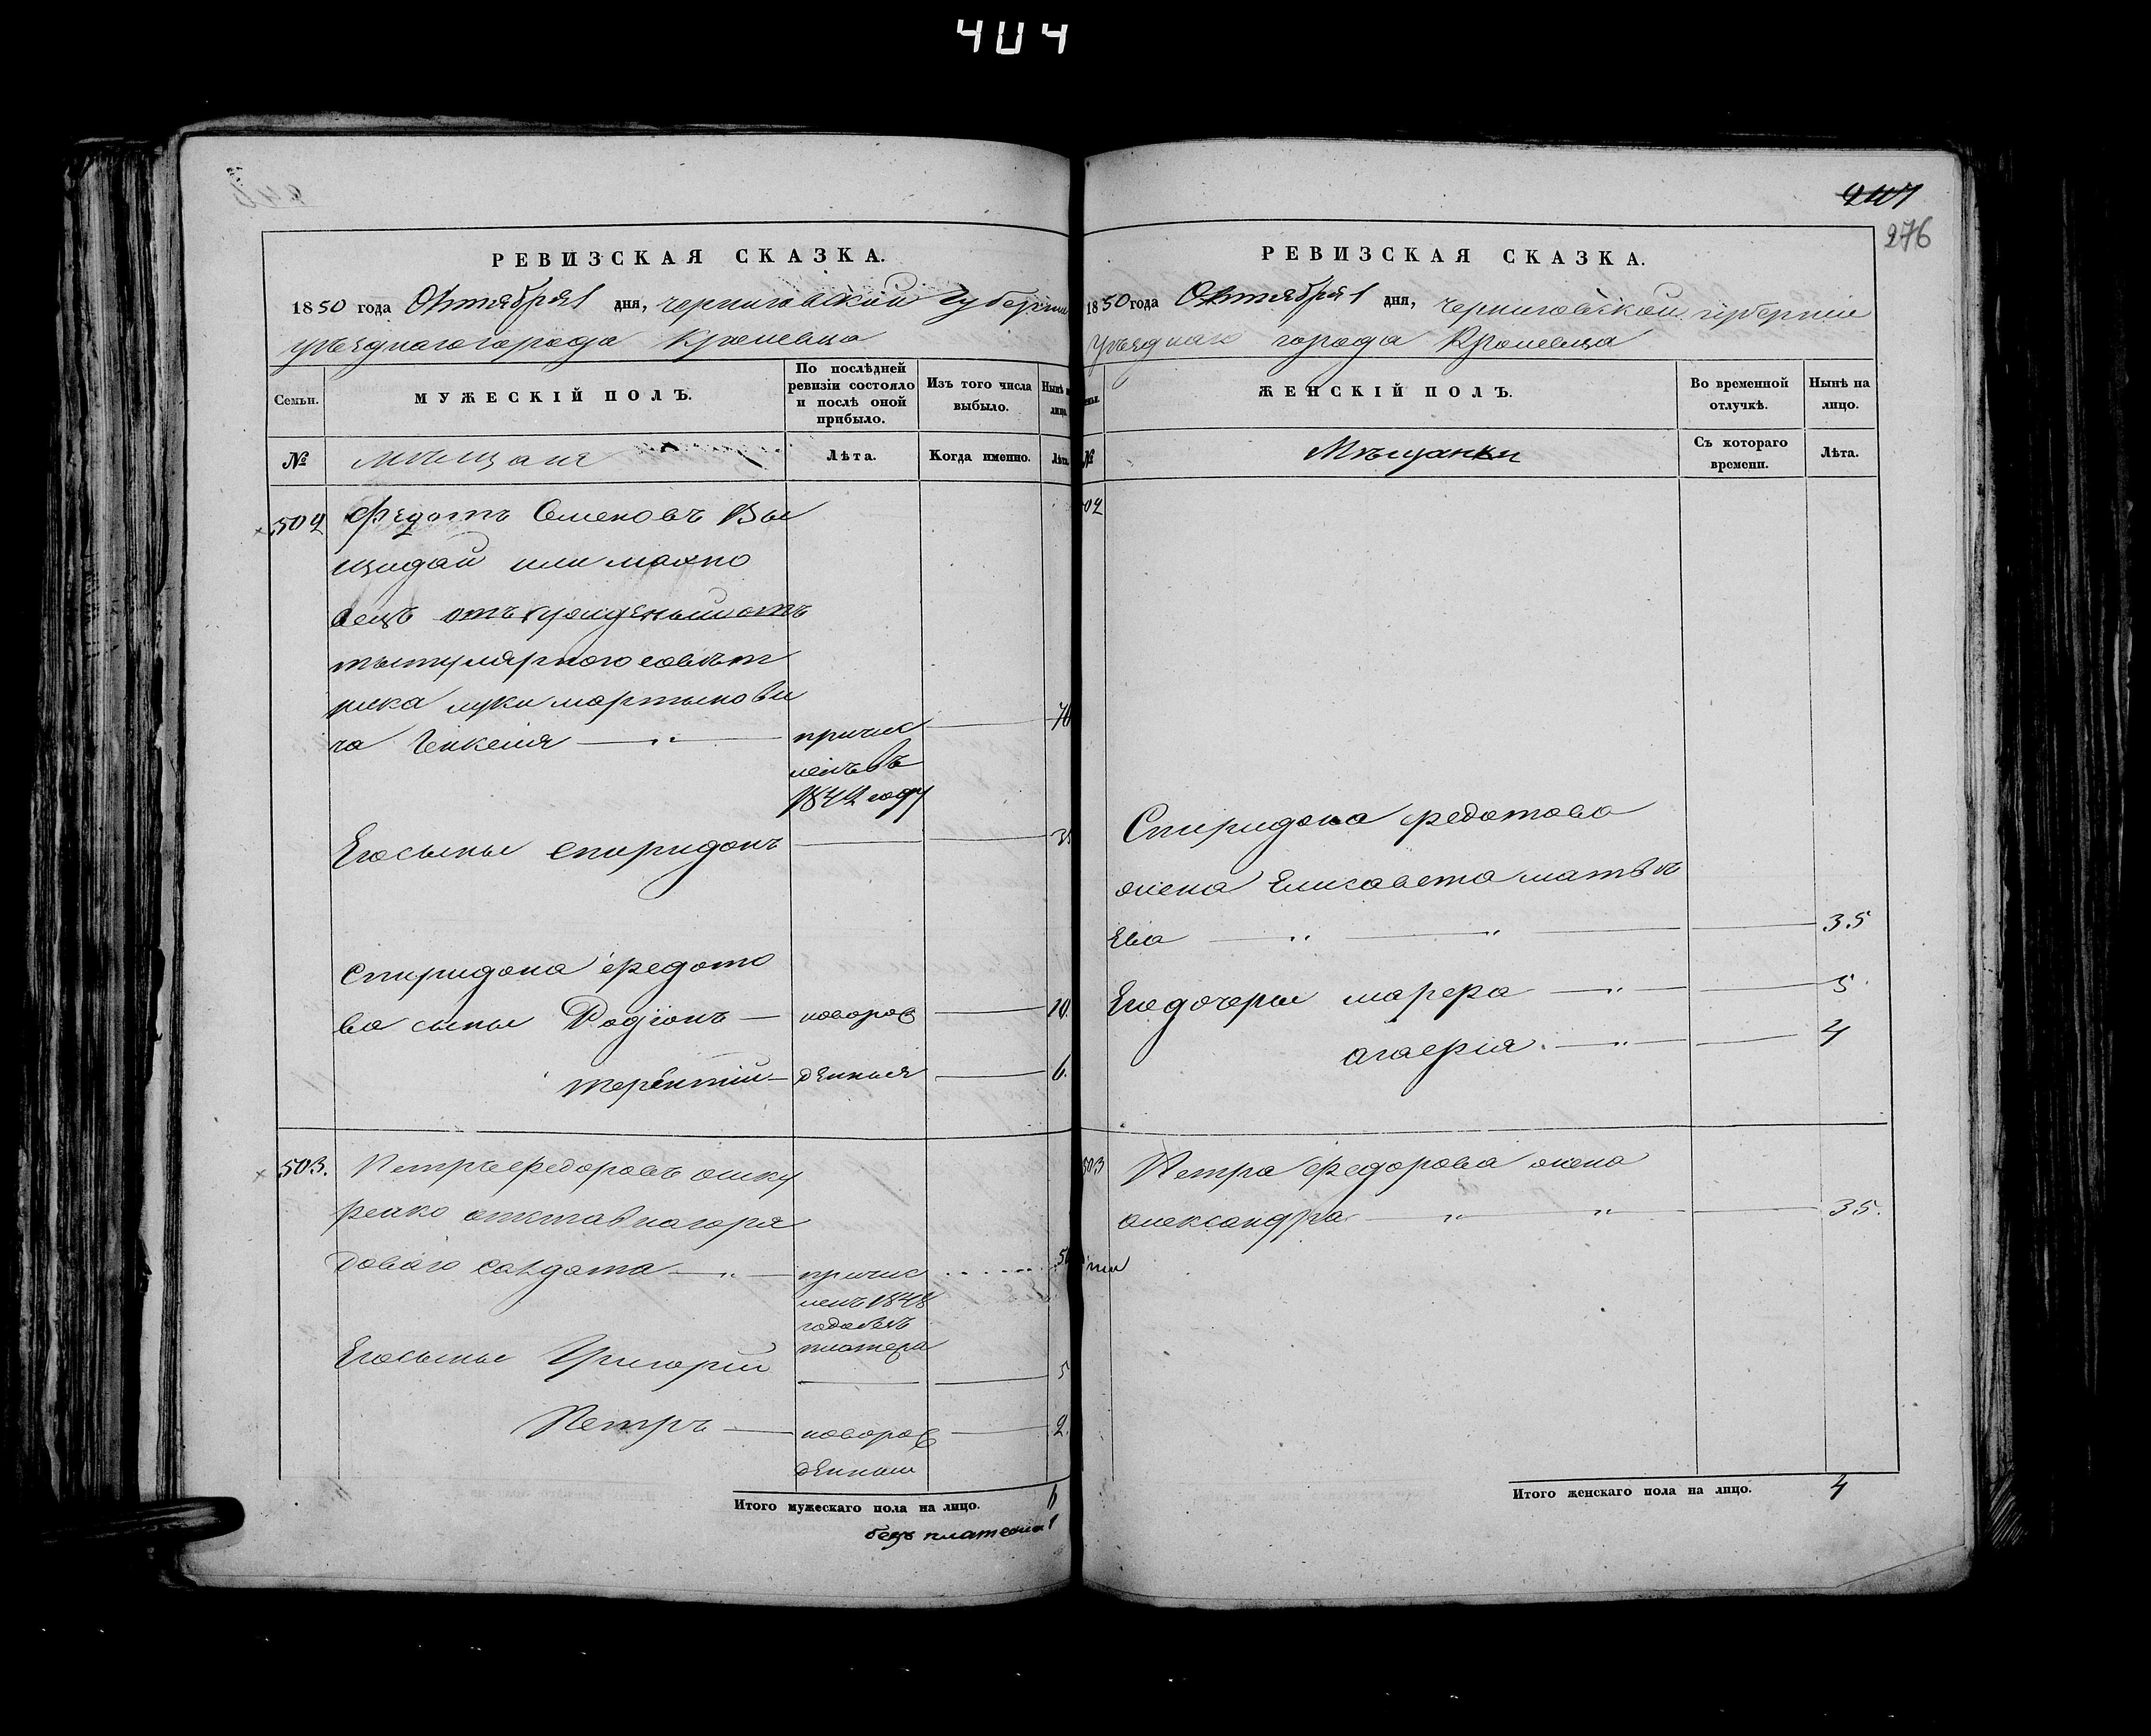 404
РЕВИЗСКАЯ СКАЗКА.
1850 года Октября 1 дня, Черниговской Губерніи
уѣзднаго города Кролевца
Семьи.
МУЖЕСКІЙ ПОЛЪ.
По послѣдней ревизіи состояло и послѣ оной прибыло.
Изъ того числа выбыло.
Нынѣ на лицо.
№
мѣщане
Лѣта.
Когда именно.
Лѣта.
502 Федотъ Семеновъ Вы
или махно
вецъ отъ
титулярного совѣт
ника луки мартынови
ча
причис
76
ленъ въ
1842 году
Его сыны спиридонъ
35
Спиридона федото
ва сыны Родіонъ новорож 10.
терентий денныя 6.
503. Петръ федоровъ ошку
ренко отставнаго ря
доваго солдата причис 50
ленъ 1848
года безъ
платежа
Его сыны Григорій 5
Петръ новорож 2.
денный
Итого мужескаго пола на лицо. 6
безъ платежа 1
247
276
РЕВИЗСКАЯ СКАЗКА.
1850 года Октября 1 дня, Черниговской губерніи
уѣзднаго города Кролевца
ЖЕНСКІЙ ПОЛЪ.
Во временной отлучкѣ.
Нынѣ на лицо.
№
Мѣщанки
Съ котораго времени.
Лѣта.
502
Спиридона федотова
жена Елисавета матвѣ
ева 35
Его дочери марфа 5
агафія 4
503 Петра Федорова жена
александра 35.
Итого женскаго пола на лицо. 4